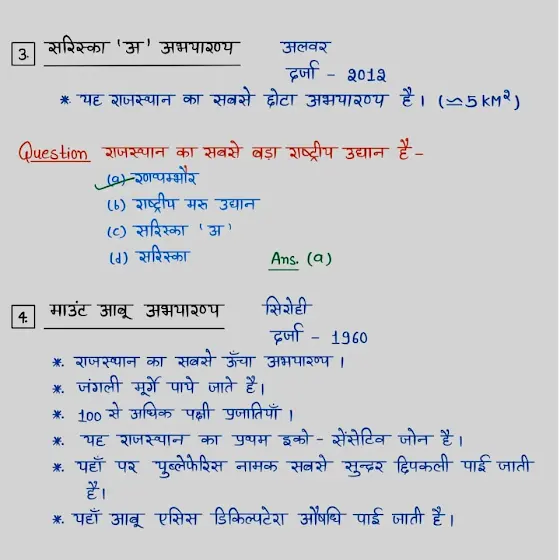 3. सरिस्का 'अ' अभयारण्य अलवर
दर्जा - 2012
* यह राजस्थान का सबसे छोटा अभयारण्य है। (≃5 KM²)
Question राजस्थान का सबसे बड़ा राष्ट्रीय उद्यान है -
(a) रणथम्भौर
(b) राष्ट्रीय मरु उद्यान
(c) सरिस्का 'अ'
(d) सरिस्का Ans. (a)
4. माउंट आबू अभयारण्य सिरोही
दर्जा - 1960
*. राजस्थान का सबसे ऊँचा अभयारण्य ।
*. जंगली मूर्गे पाये जाते है।
*. 100 से अधिक पक्षी प्रजातियाँ ।
*. यह राजस्थान का प्रथम इको - सेंसेटिव जोन है।
*. यहाँ पर यूब्लेफेरिस नामक सबसे सुन्दर छिपकली पाई जाती
है।
*. यहाँ आबू एसिस डिकिल्पटेरा औषधि पाई जाती है।